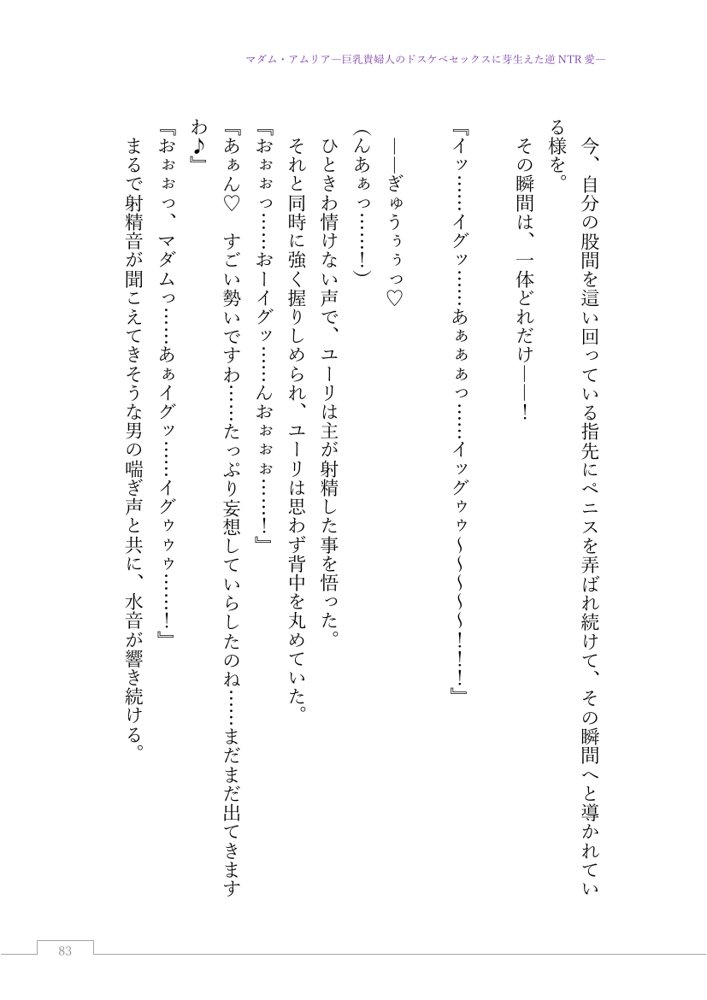 マダム・アムリア―巨乳貴婦人のドスケベセックスに芽生えた逆NTR愛―
今、自分の股間を這い回っている指先にペニスを弄ばれ続けて、その瞬間へと導かれてい
る様を。
その瞬間は、一体どれだけ――！
『イッ……イグッ……あぁぁぁっ……イッグゥゥ～～～～～！！！』
――ぎゅうぅぅっ♡
(んあぁっ……！)
ひときわ情けない声で、ユーリは主が射精した事を悟った。
それと同時に強く握りしめられ、ユーリは思わず背中を丸めていた。
『おぉぉっ……おーイグッ……んおぉぉぉ……！』
『あぁん♡　すごい勢いですわ……たっぷり妄想していらしたのね……まだまだ出てきます
わ♪』
『おぉぉっ、マダムっ……あぁイグッ……イグゥゥゥ……！』
まるで射精音が聞こえてきそうな男の喘ぎ声と共に、水音が響き続ける。
83